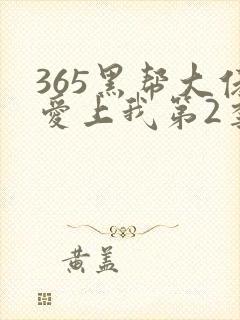 365黑帮大佬
爱上我第2季
黄盖